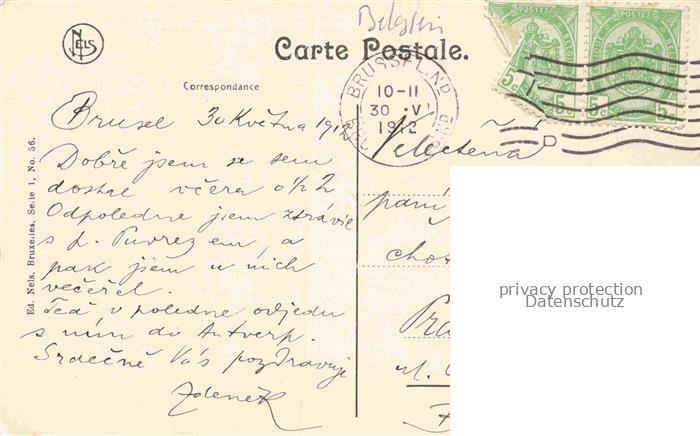 NELS
Belgien
Carte Postale.
Correspondance
BRUSSEL.ND
10-11
30 V
1912
5c 5c 5c
Brusel 30 Května 1912
Dobře jsem se sem
dostal včera o ½ 2
Odpoledne jsem ztrávil
s p. em, a
pak jsem u nich
večeřel.
Teď v poledne odjedu
s ním do Antverp.
Srdečně Vás pozdravuje
Zdeněk
Velectěná
paní
Pra
Ed. Nels, Bruxelles. Serie 1, No. 56.
privacy protection
Datenschutz